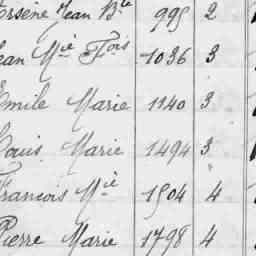 Arsène Jean Bte 995 2
Jean Mie Fois 1036 3
Emile Marie 1140 3
Louis Marie 1494 3
François Mie 1504 4
Pierre Marie 1798 4